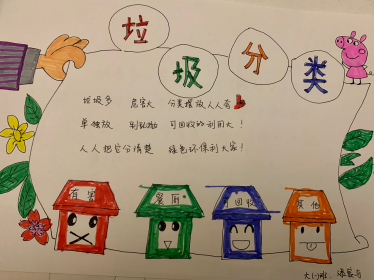 垃圾分类
垃圾多 危害大 分类摆放人人夸
单独放 别乱抛 可回收的利用大!
人人把它分清楚 绿色环保利大家!
有害 餐厨 可回收 其他